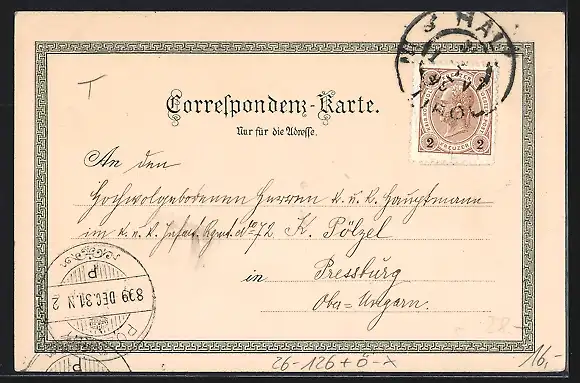 Correspondenz-Karte.
Nur für die Adresse.
2 KREUZER 2
An den
Hochwolgebodenen Herren k. u. k. Hauptmann
im k. u. k. Infant. Rgmt. No 72 K. Pölzel
in Pressburg
Ober-Ungarn.
899 DEC. 31. N 2
P
P
16,-
26-126+Ö-X